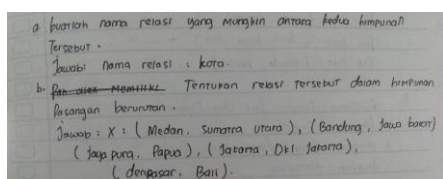 a buatlah nama relasi yang mungkin antara kedua himpunan
Tersebut.
Jawab: nama relasi : kota.
b. Tentukan relasi tersebut dalam himpunan
Pasangan berurutan.
Jawab : X : ( Medan, Sumatra utara ), ( Bandung, Jawa barat )
( Jaya pura, Papua ), ( Jakarta, Dkl Jakarta ),
( denpasar, Bali ).